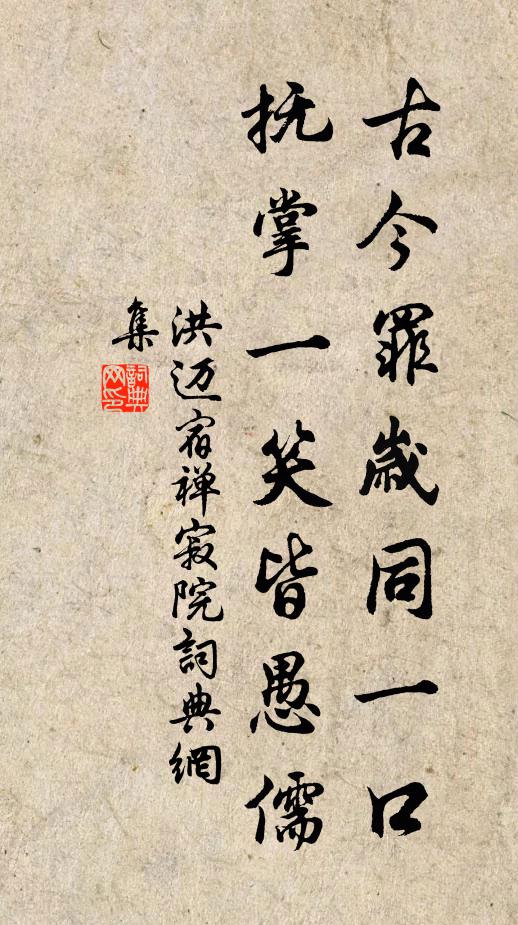 古今罪歲同一口
抚掌一笑皆愚儒
洪迈宿禅寂院詞典網
集
詞典
网印